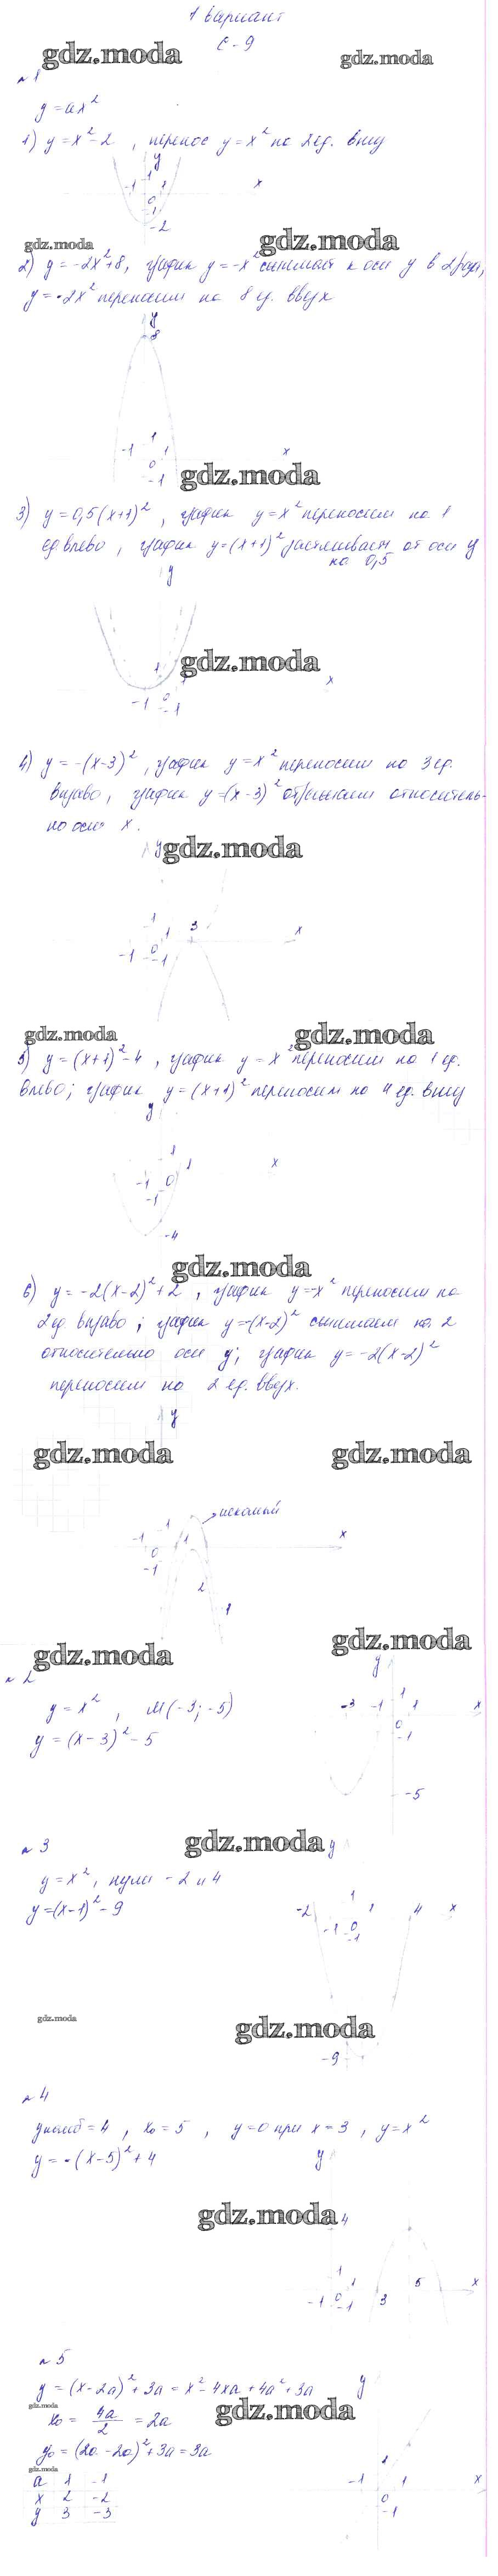 1 вариант
С-9
gdz.moda
gdz.moda
№ 1
y = ax²
1) y = x² - 2 , перенос y = x² на 2 ед. вниз
y
1
-1 1 x
0
-1
-2
gdz.moda
gdz.moda
2) y = -2x² + 8, график y = -x² сжимаем к оси y в 2 раза,
y = -2x² переносим на 8 ед. вверх
y
8
1
-1 1 x
0
-1
gdz.moda
3) y = 0,5(x+1)² , график y = x² переносим на 1
ед влево , график y = (x+1)² от оси y
на 0,5
y
gdz.moda
1
x
-1 0
-1
4) y = -(x-3)² , график y = x² переносим на 3 ед.
вправо, график y = (x-3)² отражаем относитель-
но оси x.
y
gdz.moda
1
1 3 x
-1 0
-1
gdz.moda
gdz.moda
5) y = (x+1)² - 4 , график y = x² переносим на 1 ед.
влево; график y = (x+1)² переносим на 4 ед. вниз
y
1
1 x
-1 0
-1
-4
gdz.moda
6) y = -2(x-2)² + 2 , график y = -x² переносим на
2 ед. вправо ; график y = -(x-2)² сжимаем на 2
относительно оси y; график y = -2(x-2)²
переносим на 2 ед. вверх.
y
gdz.moda
gdz.moda
искомый
1
-1 1 x
0
-1
2
1
gdz.moda
gdz.moda
№ 2
y = x² , М(-3; -5)
y = (x-3)² - 5
y
1
-3 -1 1 x
0
-1
-5
gdz.moda
№ 3
y = x², нули -2 и 4
y = (x-1)² - 9
y
1
-2 1 4 x
-1 0
-1
gdz.moda
gdz.moda
-9
№ 4
yнаиб = 4 , x₀ = 5 , y = 0 при x = 3 , y = x²
y = -(x-5)² + 4
y
gdz.moda
4
1
1 5 x
-1 0 3
-1
№ 5
y = (x-2a)² + 3a = x² - 4xa + 4a² + 3a
gdz.moda
gdz.moda
x₀ = 4a/2 = 2a
y₀ = (2a-2a)² + 3a = 3a
gdz.moda
a 1 -1
x 2 -2
y 3 -3
y
1
-1 1 x
0
-1